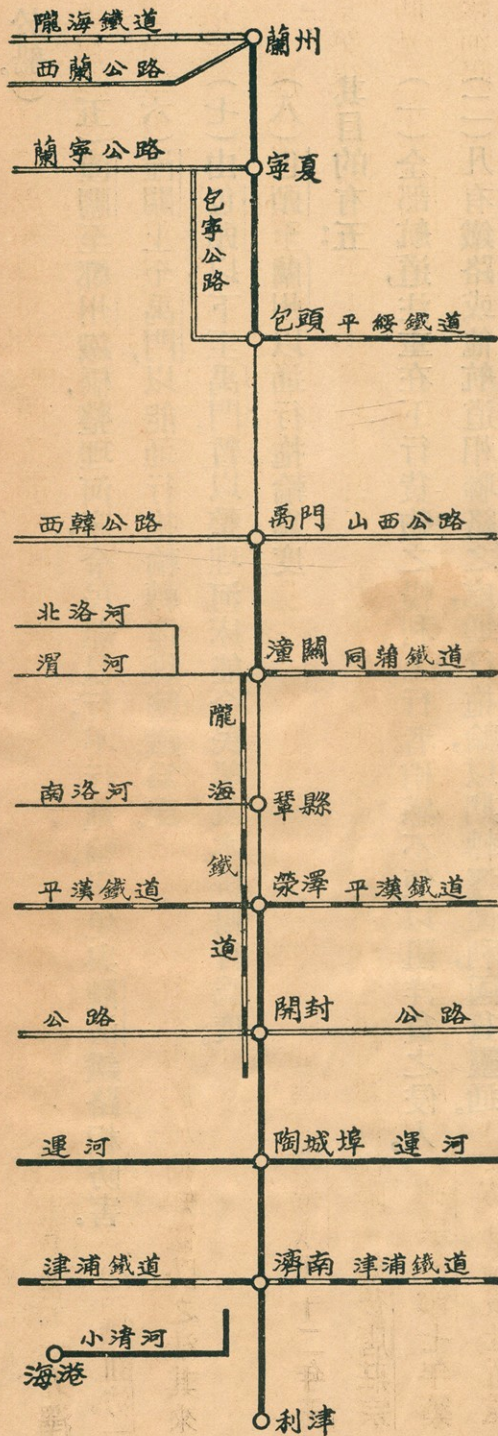 隴海鐵道
蘭州
西蘭公路
蘭寧公路
寧夏
包寧公路
包頭 平綏鐵道
西韓公路
禹門 山西公路
北洛河
渭河
潼關 同蒲鐵道
隴海鐵道
南洛河
鞏縣
平漢鐵道
滎澤 平漢鐵道
公路
開封 公路
運河
陶城埠 運河
津浦鐵道
濟南 津浦鐵道
小清河
海港
利津